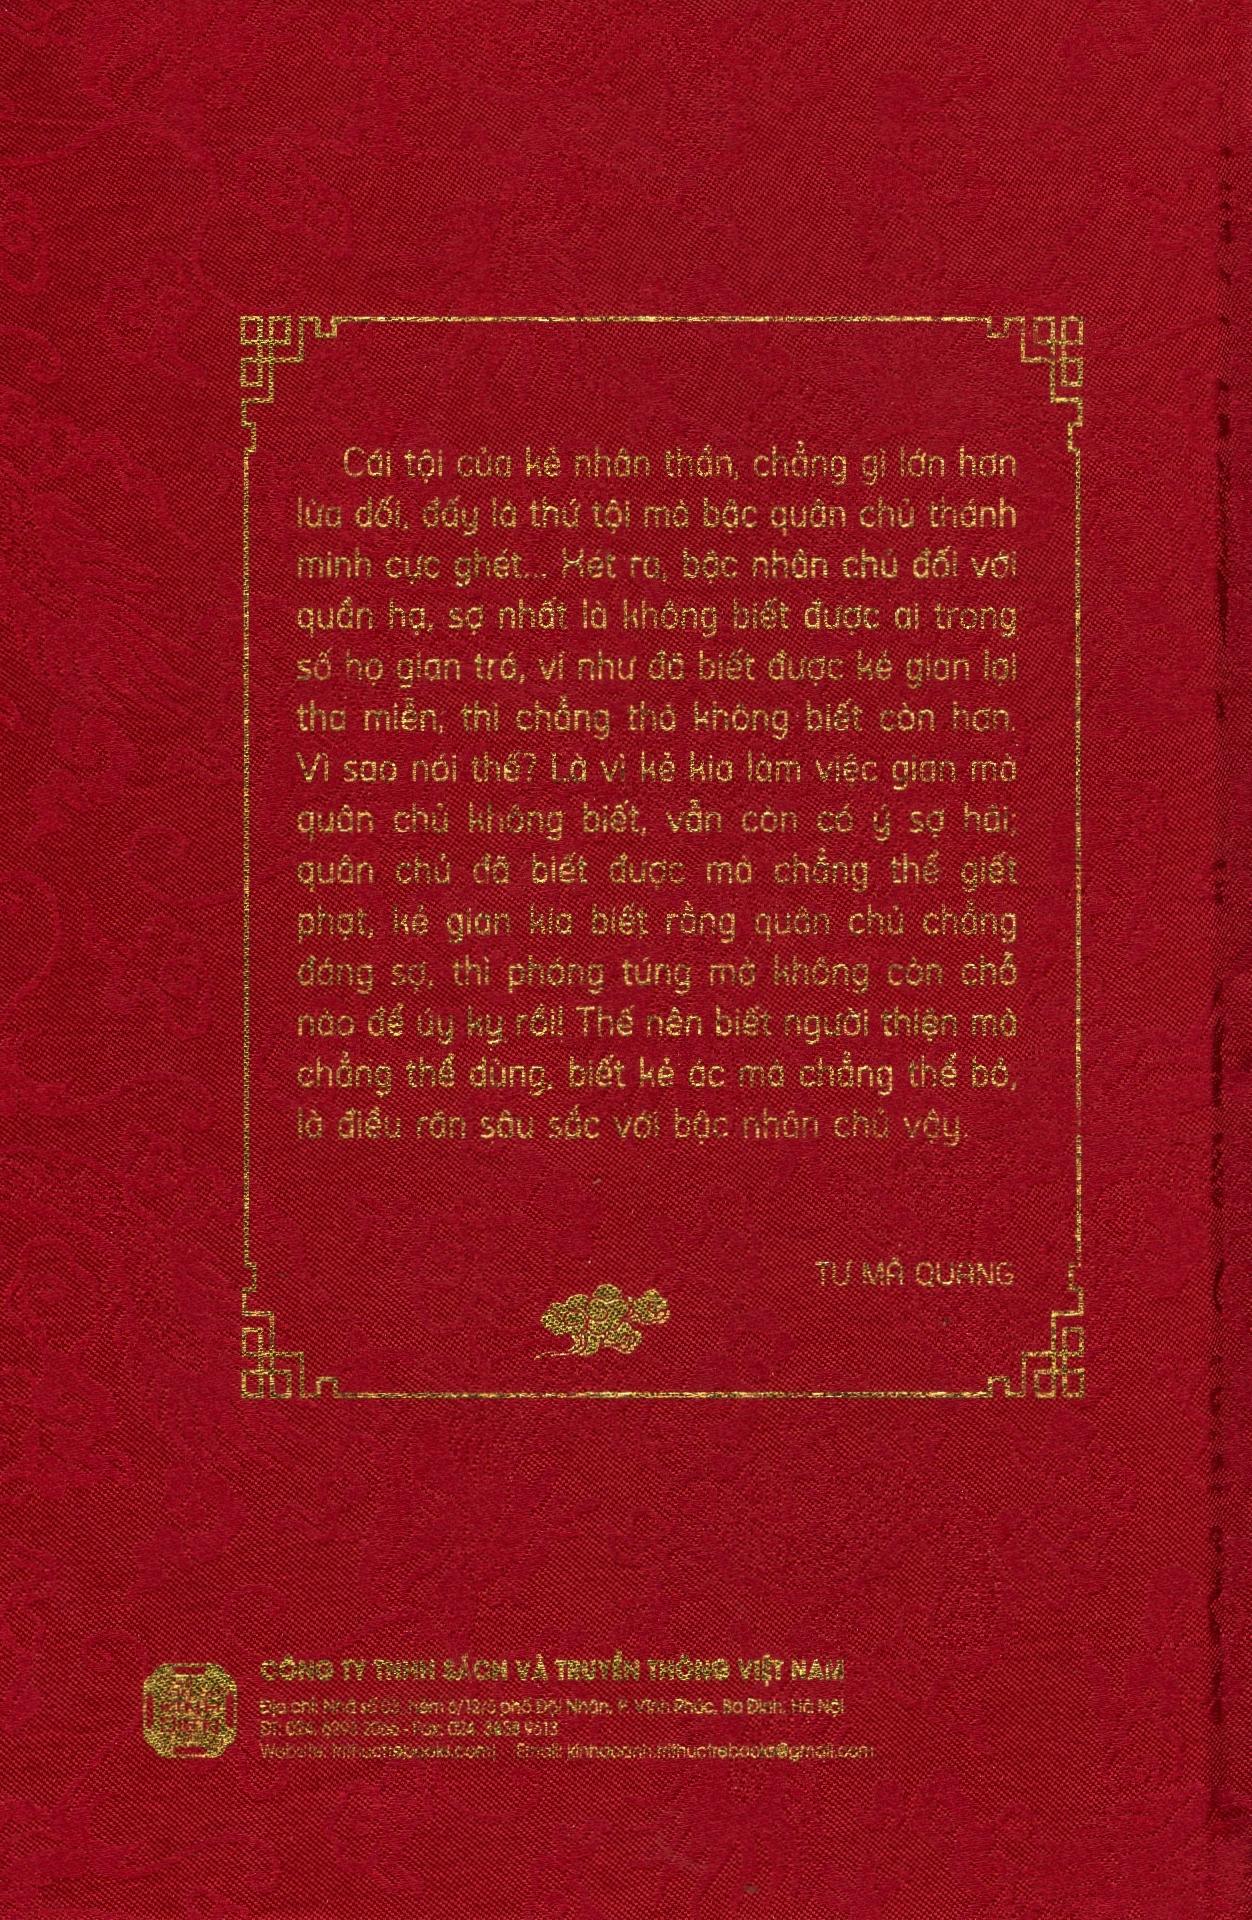 Cái tội của kẻ nhân thần, chẳng gì lớn hơn
lừa dối, đấy là thứ tội mà bậc quân chủ thánh
minh cực ghét... Xét ra, bậc nhân chủ đối với
quần hạ, sợ nhất là không biết được ai trong
số họ gian trá, ví như đã biết được kẻ gian lại
tha miễn, thì chẳng thà không biết còn hơn.
Vì sao nói thế? Là vì kẻ kia làm việc gian mà
quân chủ không biết, vẫn còn có ý sợ hãi;
quân chủ đã biết được mà chẳng thể giết
phạt, kẻ gian kia biết rằng quân chủ chẳng
đáng sợ, thì phóng túng mà không còn chỗ
nào để úy kỵ rồi! Thế nên biết người thiện mà
chẳng thể dùng, biết kẻ ác mà chẳng thể bỏ,
là điều răn sâu sắc với bậc nhân chủ vậy.
TƯ MÃ QUANG
CÔNG TY TNHH SÁCH VÀ TRUYỀN THÔNG VIỆT NAM
Địa chỉ: Nhà số 03, hẻm 6/12/6 phố Đội Nhân, P. Vĩnh Phúc, Ba Đình, Hà Nội
ĐT: 024. 6293 2066 - Fax: 024. 3858 9613
Website: trithuctrebooks.com Email: kinhdoanh.trithuctrebooks@gmail.com